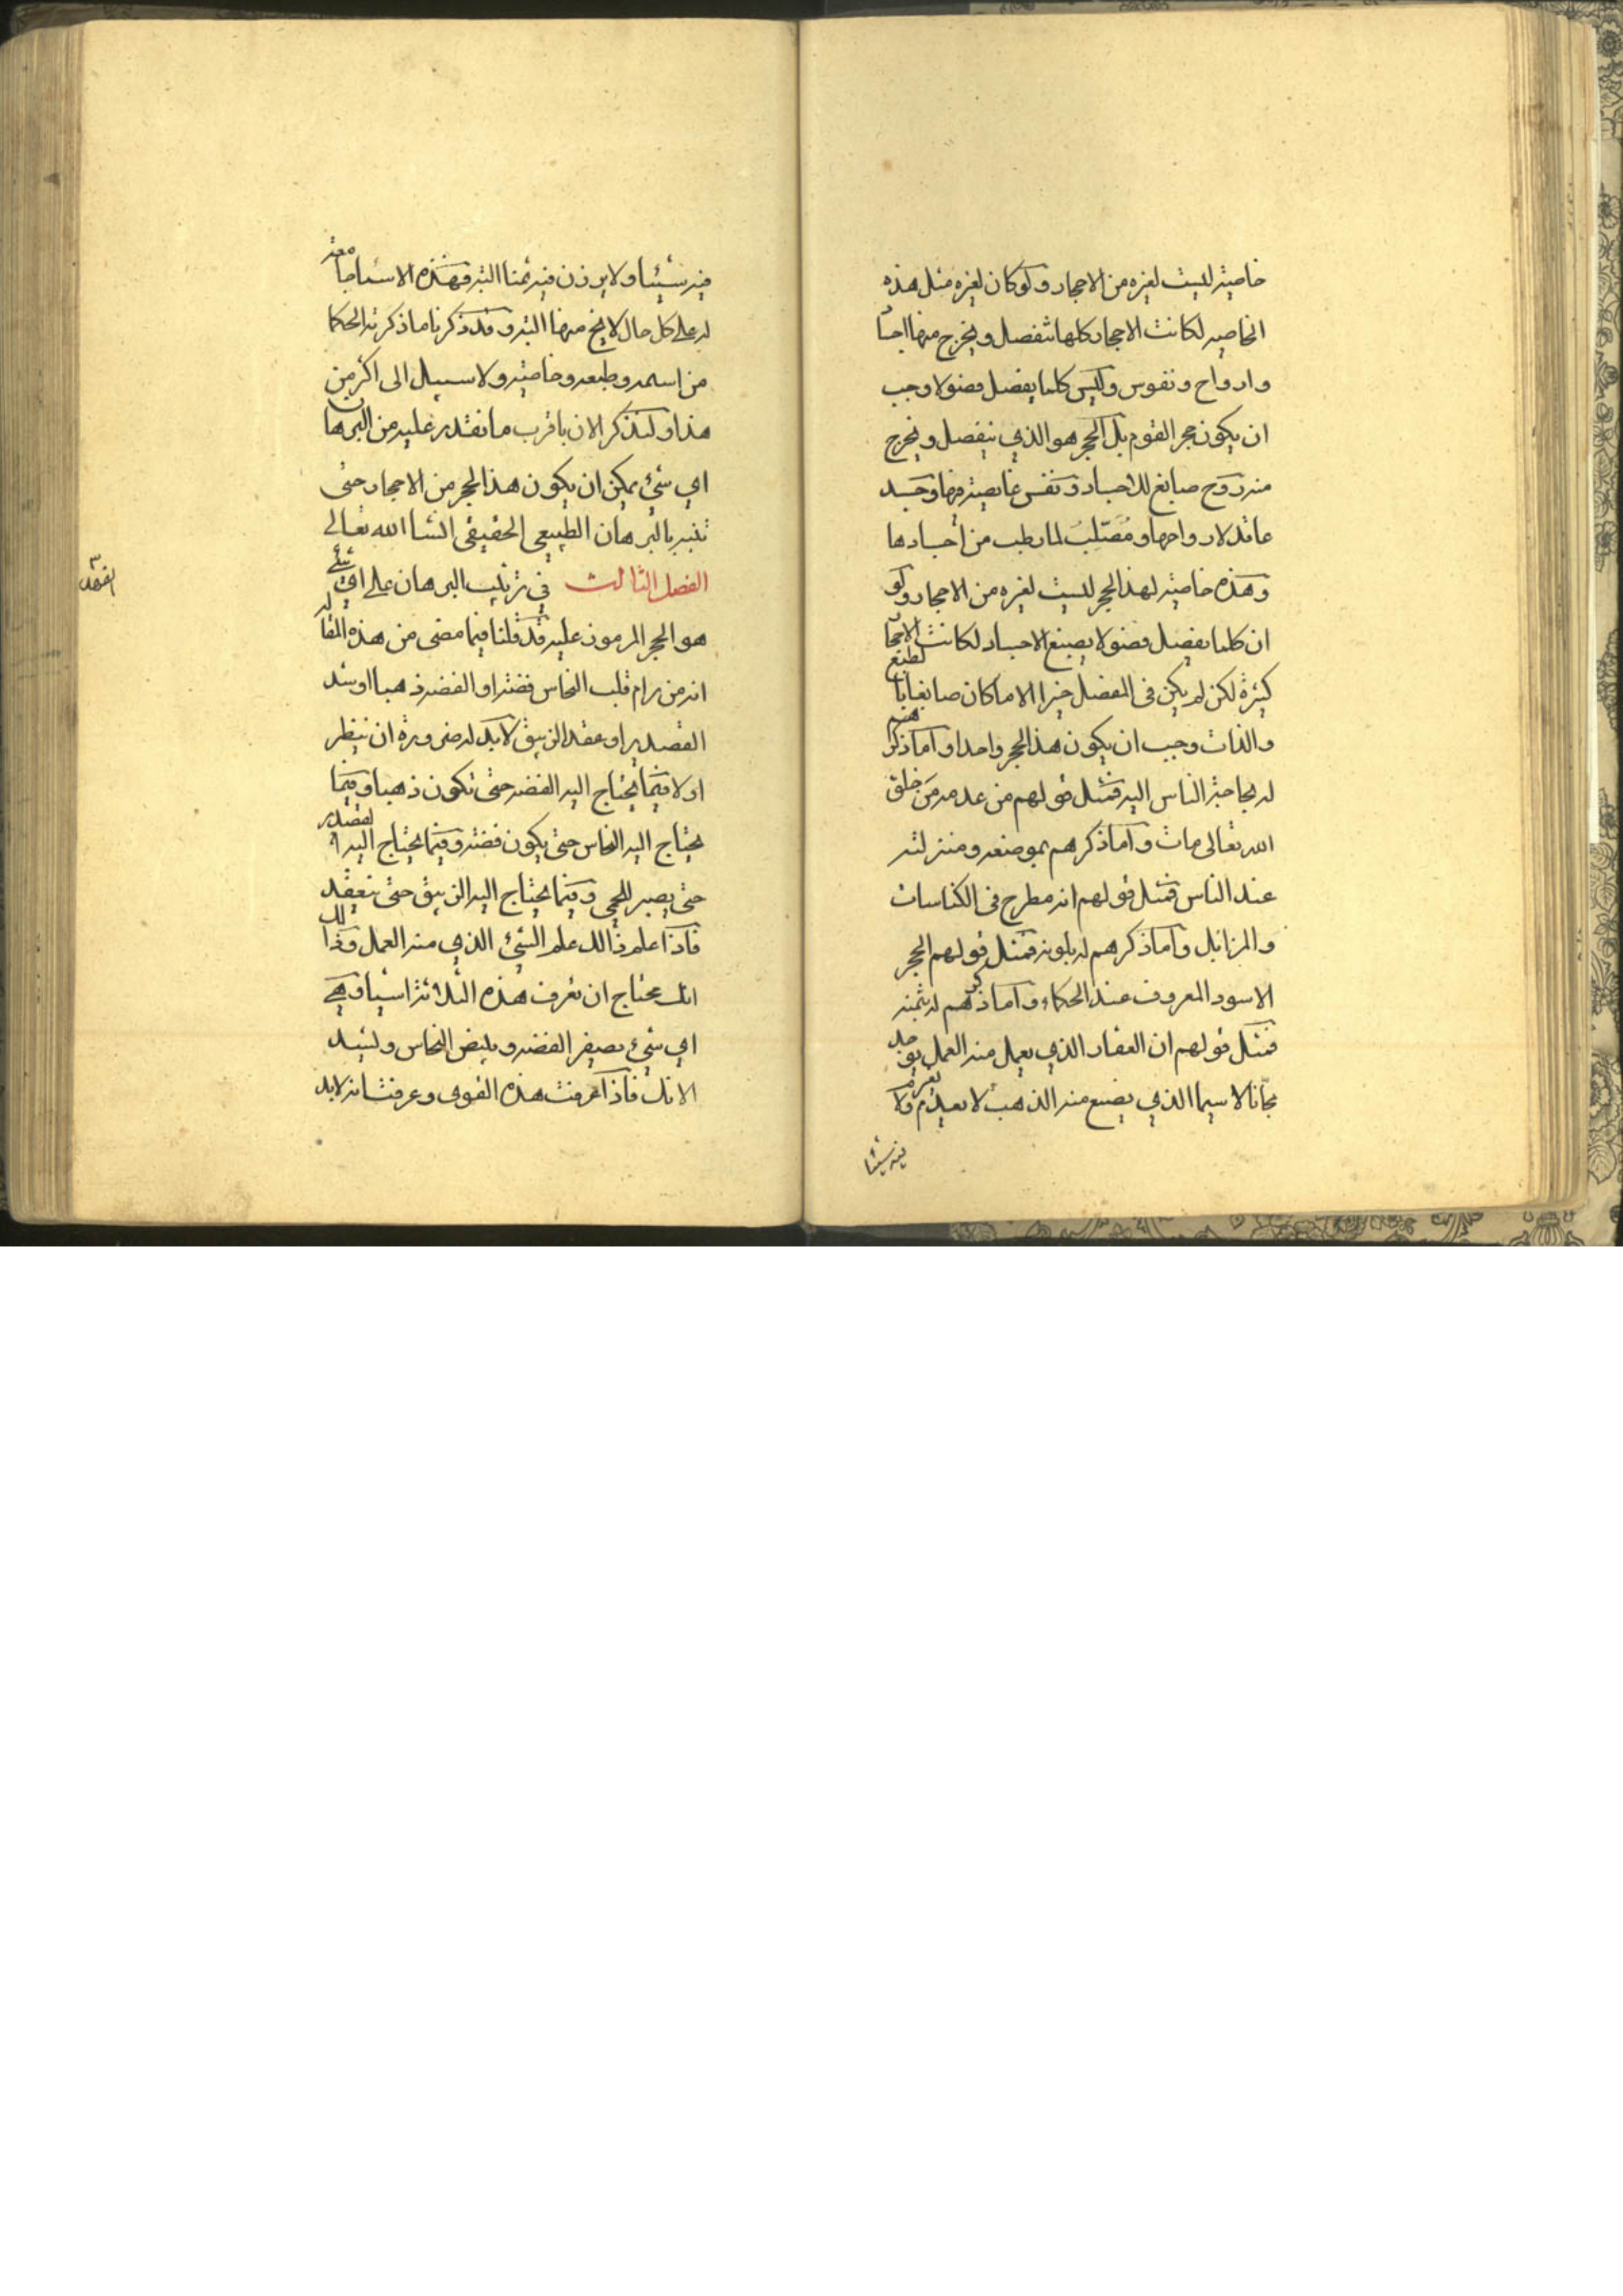 خاصية ليست لغيره من الاحجار ولو كان لغيره مثل هذه
الخاصية لكانت الاحجار كلها تنفصل ويخرج منها اجسا
وارواح ونفوس وليس كلما يفصل فصولا وجب
ان يكون حجر القوم بل الحجر هو الذي ينفصل ويخرج
منه روح صابغ للاجساد ونفس غايصة فيها وجسد
عاقد لارواحها ومُصَلِّبُ لما رطب من أجسادها
وهذه خاصية لهذا الحجر ليست لغيره من الاحجار ولو
ان كلما يفصل فصولا يصبغ الاجساد لكانت الاحجا
كثيرة لكن لم يكن في المفصل خيرا الا ما كان صابغا بالطبع
والذات وجب ان يكون هذا الحجر واحدا واما ذكرهم
له بحاجة الناس اليه فمثل قولهم من عدمه من خلق
الله تعالى مات واما ذكرهم بموضعه ومنزلته
عند الناس فمثل قولهم انه مطرح في الكناسات
والمزابل واما ذكرهم له بلونه فمثل قولهم الحجر
الاسود المعروف عند الحكماء واما ذكرهم له بثمنه
فمثل قولهم ان العقار الذي يعمل منه العمل يوجد
مجانا لاسيما الذي يصبغ منه الذهب لا يعدم ولا يغرم
فيه شيئا
فيه شيئا ولا يرزن فيه ثمنا البتة فهذه الاشيا جامعة
له على كل حال لا يخرج منها البتة وقد ذكرنا ما ذكرته الحكما
من اسمه وطبعه وخاصيته ولا سبيل الى اكثر من
هذا ولنذكر الان باقرب ما نقدر عليه من البرهان
اي شئ يمكن ان يكون هذا الحجر من الاحجار حتى
بالبرهان الطبيعي الحقيقي انشا الله تعالى
الفصل الثالث في ترتيب البرهان على اي شئ
هو الحجر المرموز عليه قد قلنا فيما مضى من هذه المقاله
انه من رام قلب النحاس فضة او الفضة ذهبا او شد
القصدير او عقد الزيبق لابد له ضرورة ان ينظر
اولا فيما يحتاج اليه الفضة حتى تكون ذهبا وفيما
يحتاج اليه النحاس حتى يكون فضة وفيما يحتاج اليه القصدير
حتى يصبر للحمي وفيما يحتاج اليه الزيبق حتى ينعقد
فاذا علم ذالك علم الشئ الذي منه العمل وذالك
انك تحتاج ان تعرف هذه الثلاثة اشيا وهي
اي شئ يصفر الفضة ويبيض النحاس ويشد
الانك فاذا عرفت هذه القوى وعرفت انه لابد